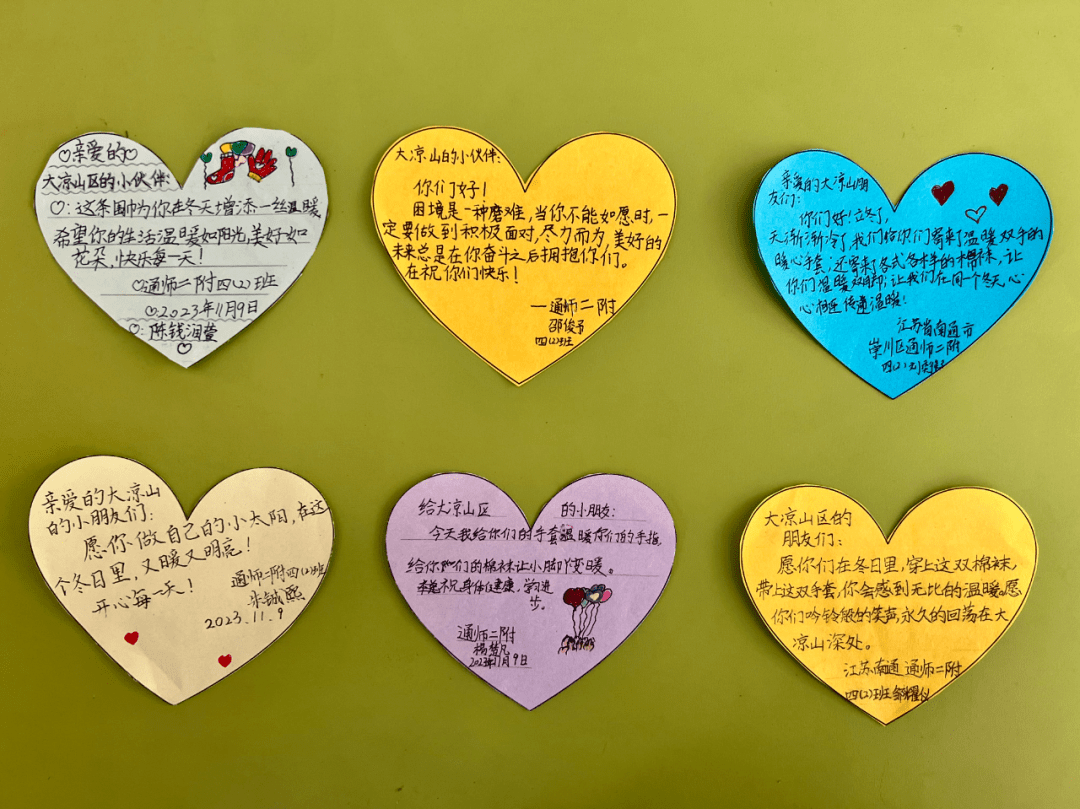 ♡亲爱的♡
大凉山区的小伙伴:
♡:这条围巾为你在冬天增添一丝温暖
希望你的生活温暖如阳光,美好如
花朵,快乐每一天!
♡通师二附四(2)班
♡2023年11月9日
♡:陈钱润莹
♡
大凉山的小伙伴:
你们好!
困境是一种磨难,当你不能如愿时,一
定要做到积极面对,尽力而为 美好的
未来总是在你奋斗之后拥抱你们。
在祝你们快乐!
—通师二附
邵俊予
四(2)班
亲爱的大凉山朋
友们:
你们好!立冬了,
天渐渐冷了,我们给你们寄来了温暖双手的
暖心手套;还寄来了各式各样的棉袜,让
你们温暖双脚;让我们在同一个冬天,心
心相连 传递温暖!
江苏省南通市
崇川区通师二附
四(2)
亲爱的大凉山
的小朋友们:
愿你做自己的小太阳,在这
个冬日里,又暖又明亮!
开心每一天!
通师二附四(2)班
朱铖熙
2023.11.9
给大凉山区 的小朋友:
今天我给你们的手套温暖你们的手拖
给你们的棉袜让小脚丫变暖。
祝身体健康,学习进
步。
通师二附
杨梦凡
2023年11月9日
大凉山区的
朋友们:
愿你们在冬日里,穿上这双棉袜,
带上这双手套,你会感到无比的温暖。愿
你们吟铃般的笑声永久的回荡在大
凉山深处。
江苏南通 通师二附
四(2)班邹耀仪